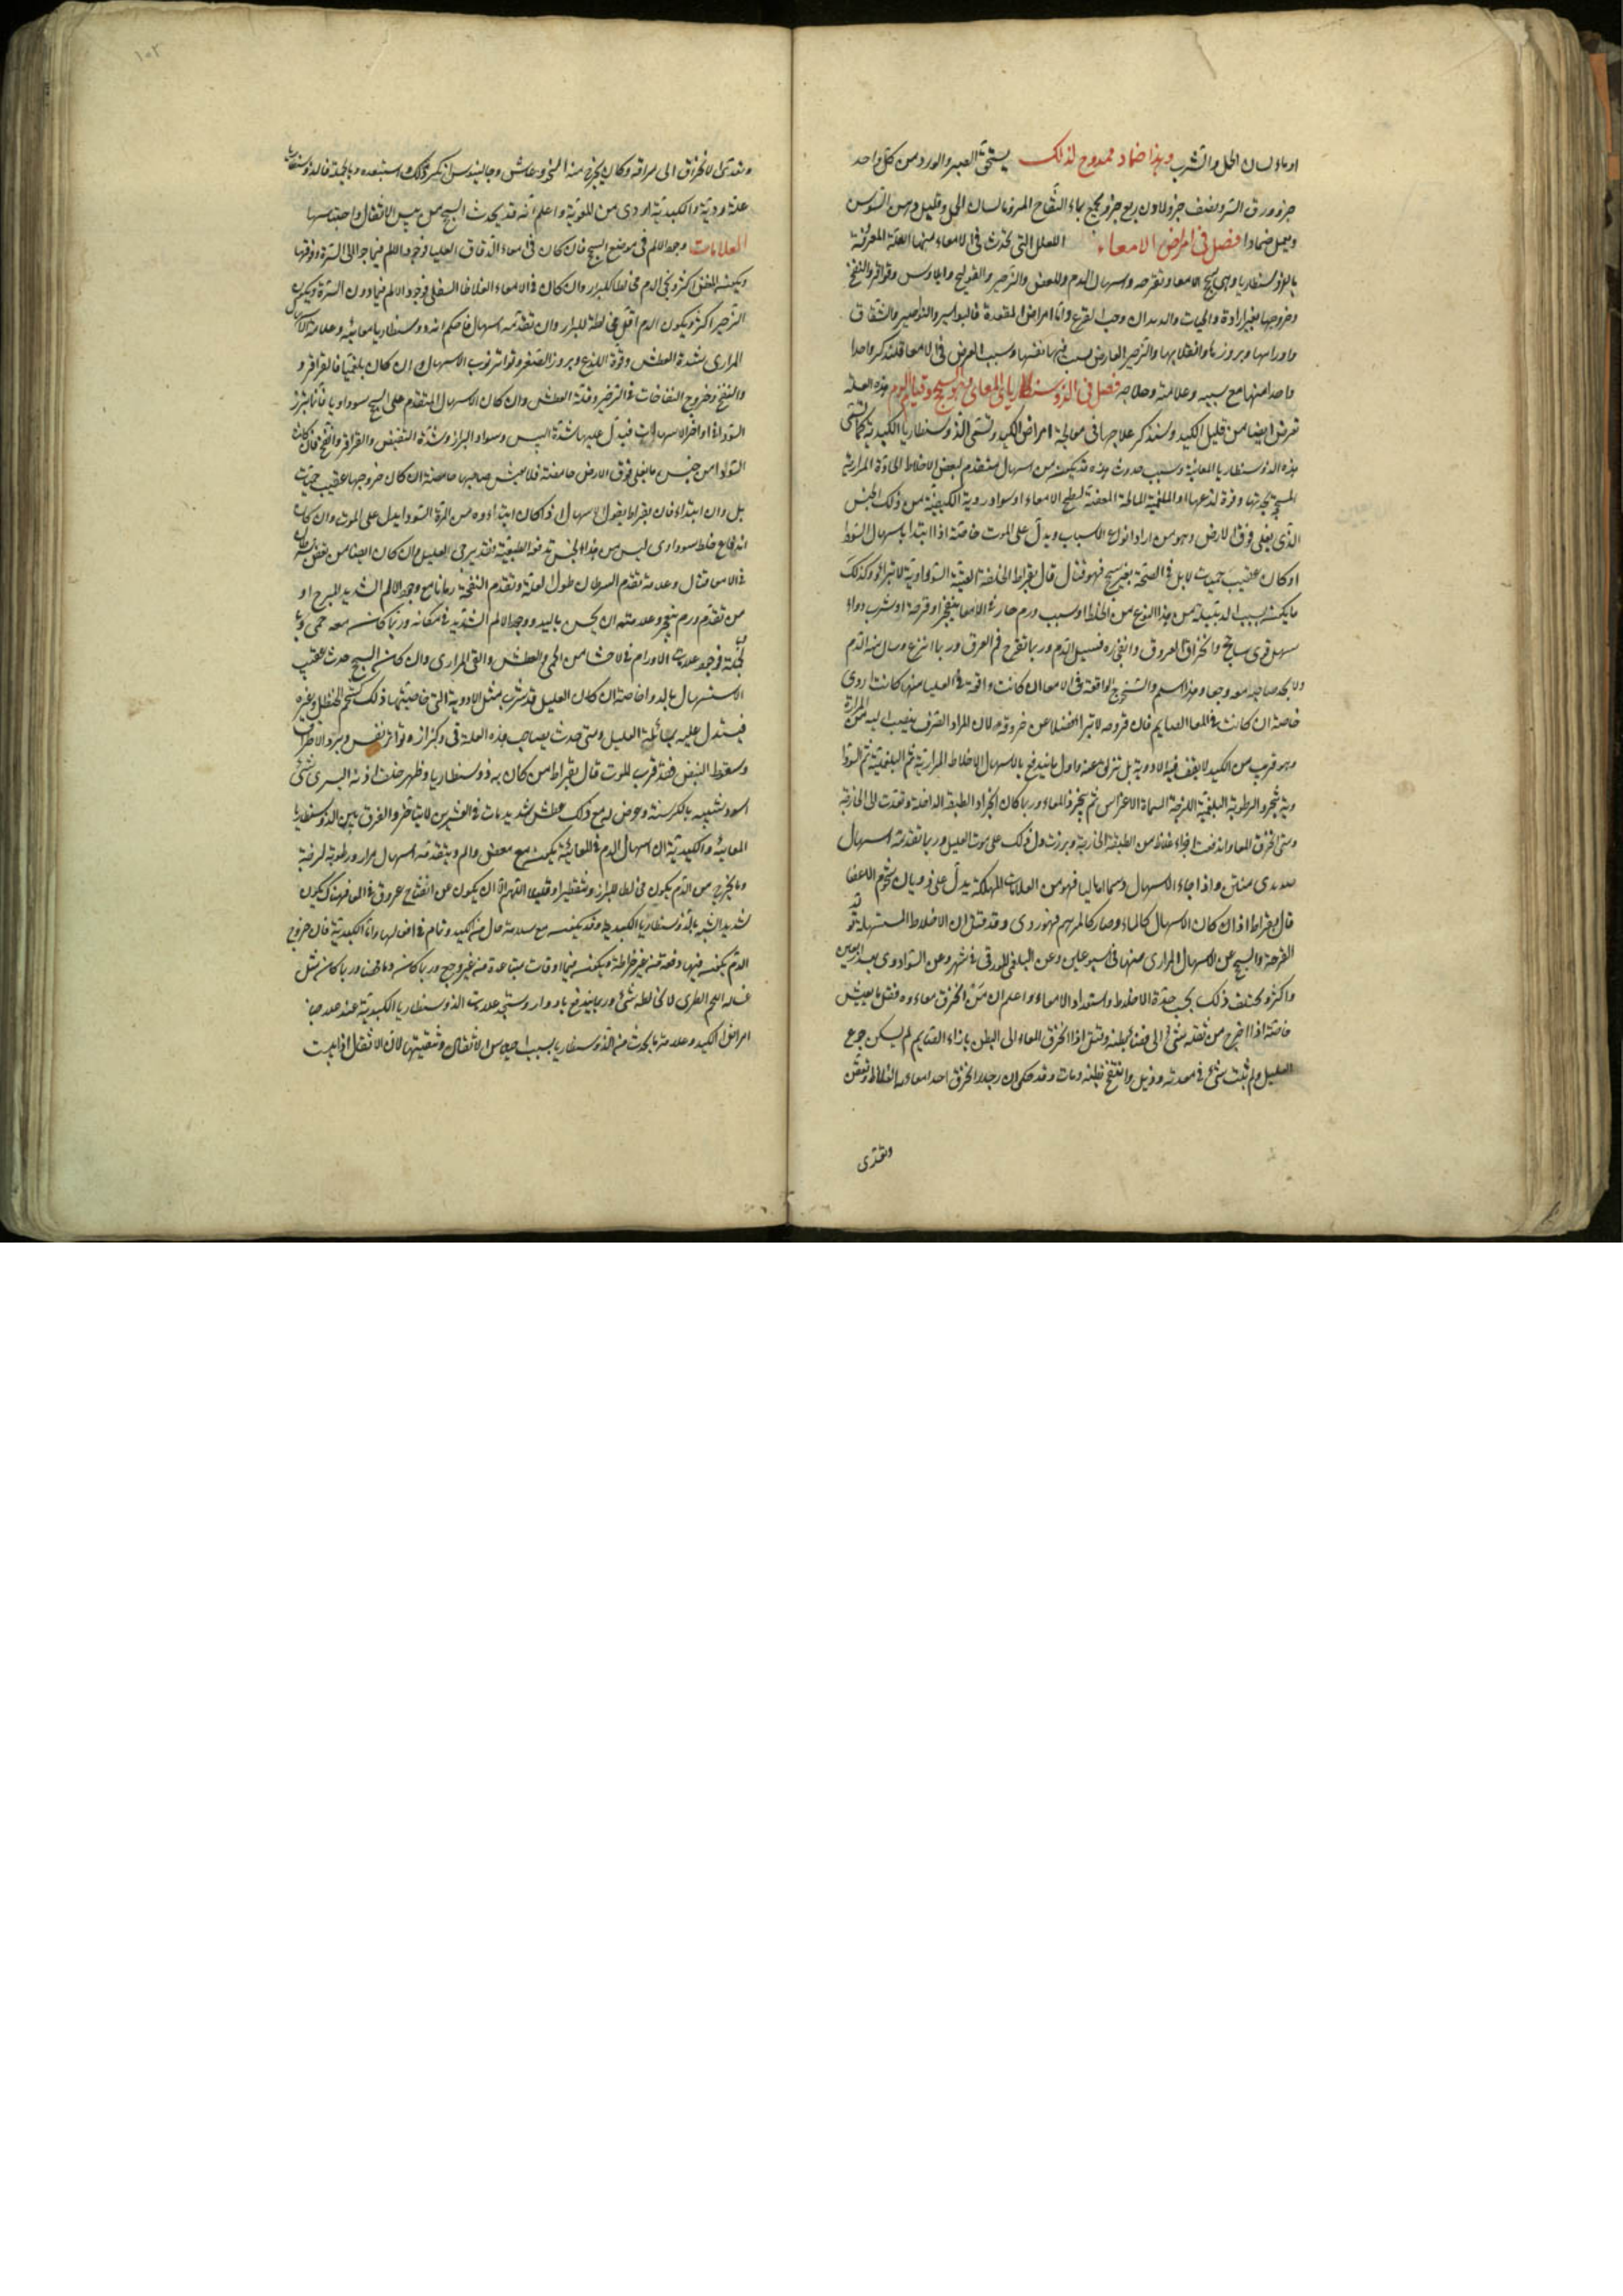 او ماء لسان الحمل والشرب وهذا ضماد ممدوح لذلك يستحق الصبر والورد من كل واحد
جزو ورق السرو نصف جزو لادن ربع جزو يعجن بماء التفاح المر وماء لسان الحمل وقليل دهن السوسن
ويعمل ضمادا فصل في امراض الامعاء العلل التي تحدث في الامعاء منها العلة المعروفة
بالذوسنطاريا وهي سحج الامعاء وتقرحه واسهال الدم والمغص والزحير والقولنج وايلاوس وقراقر والنفخ
وخروجها بغير ارادة والحيات والديدان وحب القرع واما امراض المقعدة فالبواسير والنواصير والشقاق
واورامها وبروزها وانقلابها والزحير العارض بسبب فيها نفسها وسبب العرض في الامعا فلنذكر واحدا
واحدا منها مع سببه وعلامته وعلاجه فصل في الذوسنطاريا المعاي وهو السحج وقيام الدم هذه العلة
تعرض ايضا من قبل الكبد وسنذكر علاجها في معالجة امراض الكبد وتسمى الذوسنطاريا الكبدية كما تسمى
هذه الذوسنطاريا المعائية وسبب حدوث هذه قد يكون من اسهال متقدم لبعض الاخلاط الحادة المرارية
المسحج بحدتها وقوة لذعها او البلغمية المالحة العفنة لسطح الامعاء او سوداوية الكيفية من ذلك الجنس
الذي يغلي فوق الارض وهو من اردا انواع الاسباب ويدل على الموت خاصة اذا ابتدا باسهال السودا
او كان عقيب حميات لا بل في الصحة بغير سحج فهو قتال قال بقراط الخلفة العتيقة السوداوية لا تبرا وكذلك
ما يكون بسبب الدبيلة من هذا النوع من الخلط او سبب ورم حار في الامعا ينفجر او قرحة او شرب دواء
مسهل قوي ساحج وانخراق العروق وانفجاره فيسيل الدم وربما تقرح فم العرق وربما انزع وسال منه الدم
ولا يجد صاحبه معه وجعا وهذا اسلم والسحج الواقعة في الامعا ان كانت واقعة في العليا منها كانت اردى
خاصة ان كانت في المعا الصايم فان قروحه لا تبرا فضلا عن خروقه لان المرار الصرف ينصب اليه من المرارة
وهو قريب من الكبد لا يقف فيه الادوية بل تزلق عنه واول ما يندفع بالاسهال الاخلاط المرارية ثم البلغمية ثم السودا
وية ثم يجرد الرطوبة البلغمية اللزجة المسماة الاغراس ثم يجرد المعاء وربما كان انجراد الطبقة الداخلة وتعدت الى الخارجة
ومتى انخرق المعا واندفعت اجزاء غلاظ من الطبقة الخارجية وبرزت دل ذلك على موت العليل وربما تقدمه اسهال
صديدي منتن واذا جاء الاسهال دسما خاليا فهو من العلامات المهلكة يدل على ذوبان شحوم الاعضا
قال بقراط اذا كان الاسهال كالماء وصار كالمرهم فهو ردي وقد قيل ان الاخلاط المسهلة قد
القرحة والسحج عن الاسهال المراري منها في اسبوعين وعن البلغمي البورقي في شهر وعن السوداوي بعد اربعين
واكثر ويختلف ذلك بحسب حدة الاخلاط واستعداد الامعاء واعلم ان من انخرق معاءوه فقل ما يعيش
خاصة اذا اخرج من ثفله شي الى فضاء بطنه وقيل اذا انخرق المعاء الى البطن بازاء الصايم لم يسكن جوع
العليل ولم يثبت شي في معدته وذبل وانتفخ بطنه ومات وقد حكي ان رجلا انخرق احد امعاءه الغلاظ وتعفن
وتعدى
١٠٢
وتعدى الانخراق الى مراقه وكان يخرج منه النجو وعاش وجالينوس انكر ذلك واستبعده وبالجملة فالذوسنطاريا
علة ردية والكبدية اردى من المعوية واعلم انه قد يحدث السحج من يبس الاثفال واحتباسها
العلامات وجود الالم في موضع السحج فان كان في امعاء الدقاق العليا وجود الالم فيما جوالى السرة وفوقها
ويكون المغص اكثر ويجي الدم مخالطا للبراز وان كان في الامعاء الغلاظ السفلى فوجود الالم فيما دون السرة ويكون
الزحير اكثر ويكون الدم اقل مخالطة للبراز وان تقدمه اسهال فاحكم انه ذوسنطاريا معائية وعلامة الاسهال
المراري شدة العطش وقوة اللذع وبروز الصفر وتواتر نوب الاسهال وان كان بلغميا فالقراقر و
والنفخ وخروج النفاخات في الزحير وقلة العطش وان كان الاسهال المتقدم على السحج سوداويا
السوداء او اخر الاسهالات فيدل عليها شدة اليبس وسواد البراز وشدة التقبض والقراقر والنفخ فان كانت
السودا من جنس ما يغلي فوق الارض حامضة فلا يعيش صاحبها خاصة ان كان خروجها عقيب حميات
بل وان ابتداء فان بقراط يقول اسهال ذو اكان ابتداءوه من المرة السودا يدل على الموت وان كان
اندفاع خلط سوداوي ليس من هذا الجنس تدفعه الطبيعة فقد يرجى العليل وان كان ايضا من تعفن سرطان
في الامعا قتال وعلامته تقدم السرطان طول العلة وتقدم النفخة زمانا مع وجود الالم الشديد المبرح او
من تقدم ورم ينفجر وعلامته ان يحس باليد ووجود الالم الشديد في مكانه وربما كان معه حمى وبا
لجملة فوجود علامات الاورام في الاحشا من الحمى والعطش والقي المراري وان كان السحج حدث عقيب
الاستسهال بالدوا خاصة ان كان العليل قد شرب مثل الادوية التي خاصيتها ذلك كشحم الحنظل وغيره
فيستدل عليه بمسائلة العليل ومتى حدث بصاحب هذه العلة قي وكزازه وتواتر نفس وبرد الاطراف
وسقوط النبض فقد قرب للموت قال بقراط من كان به ذوسنطاريا وظهر خلف اذنه اليسرى شي
اسود شبيه بالكرسنة وعرض له مع ذلك عطش شديد مات في العشرين لا يتاخر والفرق بين الذوسنطاريا
المعائية والكبدية ان اسهال الدم في المعائية يكون مع مغص والم ويتقدمه اسهال مرار ورطوبة لزجة
وما يخرج من الدم يكون مخالطا للبراز ومتقطرا وقليلا اللهم الا ان يكون عن انفتاح عروق في المعا فهناك يكون
شديد الشبه بالذوسنطاريا الكبدية وقد يكون مع سلامة حال من الكبد وتمام في افعالها واما الكبدية فان خروج
الدم يكون فيها دفعة من غير خراطة ويكون فيها اوقات متباعدة من غير وجع وربما كان وربما كان مثل
غسالة اللحم الطري لا يخالطه شي وربما يندفع بادوار وستجد علامات الذوسنطاريا الكبدية عند علاجنا
امراض الكبد وعلامة ما يحدث من الذوسنطاريا بسبب احتباس الاثفال وتنقيتها لان الاثفل اذا يبست